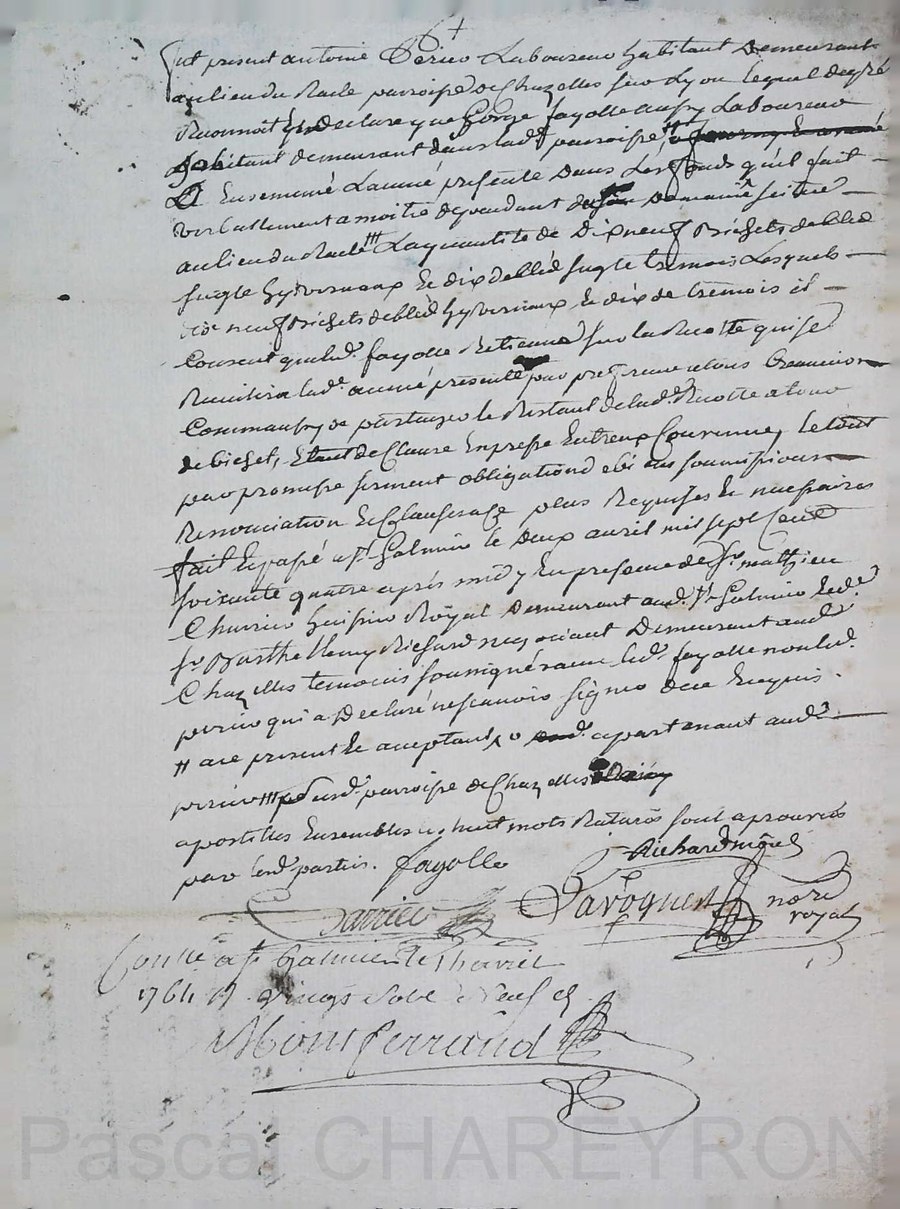 Fut present antoine Perier Laboureur habitant Demeurant
au lieu du paroisse de Chazelles sur Lyon lequel de gré
Reconnoit Et Declare que George fayolle aussy Laboureur
habitant demeurant dans lad.e paroisse #
A Ensemencé L'année presente Dans Les fonds qu'il fait
verballement a moitié dependant Domaine scitué
au lieu du ### La quantité de Dix neuf Bichets de bled
seigle hyvernaux Et dix de bled seigle tremois Lesquels
dix neuf Bichets de bled hyvernaux Et dix de tremois il
Consent que led. fayolle Retienne sur la Recotte qui se
lad.e année presente par preference alors
Comm'aussy de partager le Restant de lad.e Recotte
de bichet, Clause Expresse Entreux Convenue, le tout
par promesse serment obligations soumissions
Renonciation Et Clauses plus Requises Et necessaires
fait Et passé a S.t Galmier le Deux avril mil sept Cent
soixante quatre après midy En presence de S.r mathieu
huissier Royal Demeurant aud. S.t Galmier Et de
S.r Barthellemy Richard negociant Demeurant aud.
Chazelles temoins soussignés avec led. fayolle non led.
perier qui a Declaré ne scavoir signer de ce Enquis.
# ace present Et acceptant, apartenant aud.
perier ### susd. paroisse de Chazelles
apostilles Ensembles huit mots Raturés sont aprouvés
par lesd. partis. fayolle
Richard
Lavoquer nore
royal
Contlé a S.t Galmier le
1764 R. sols neuf d
Montferrand
Pascal CHAREYRON